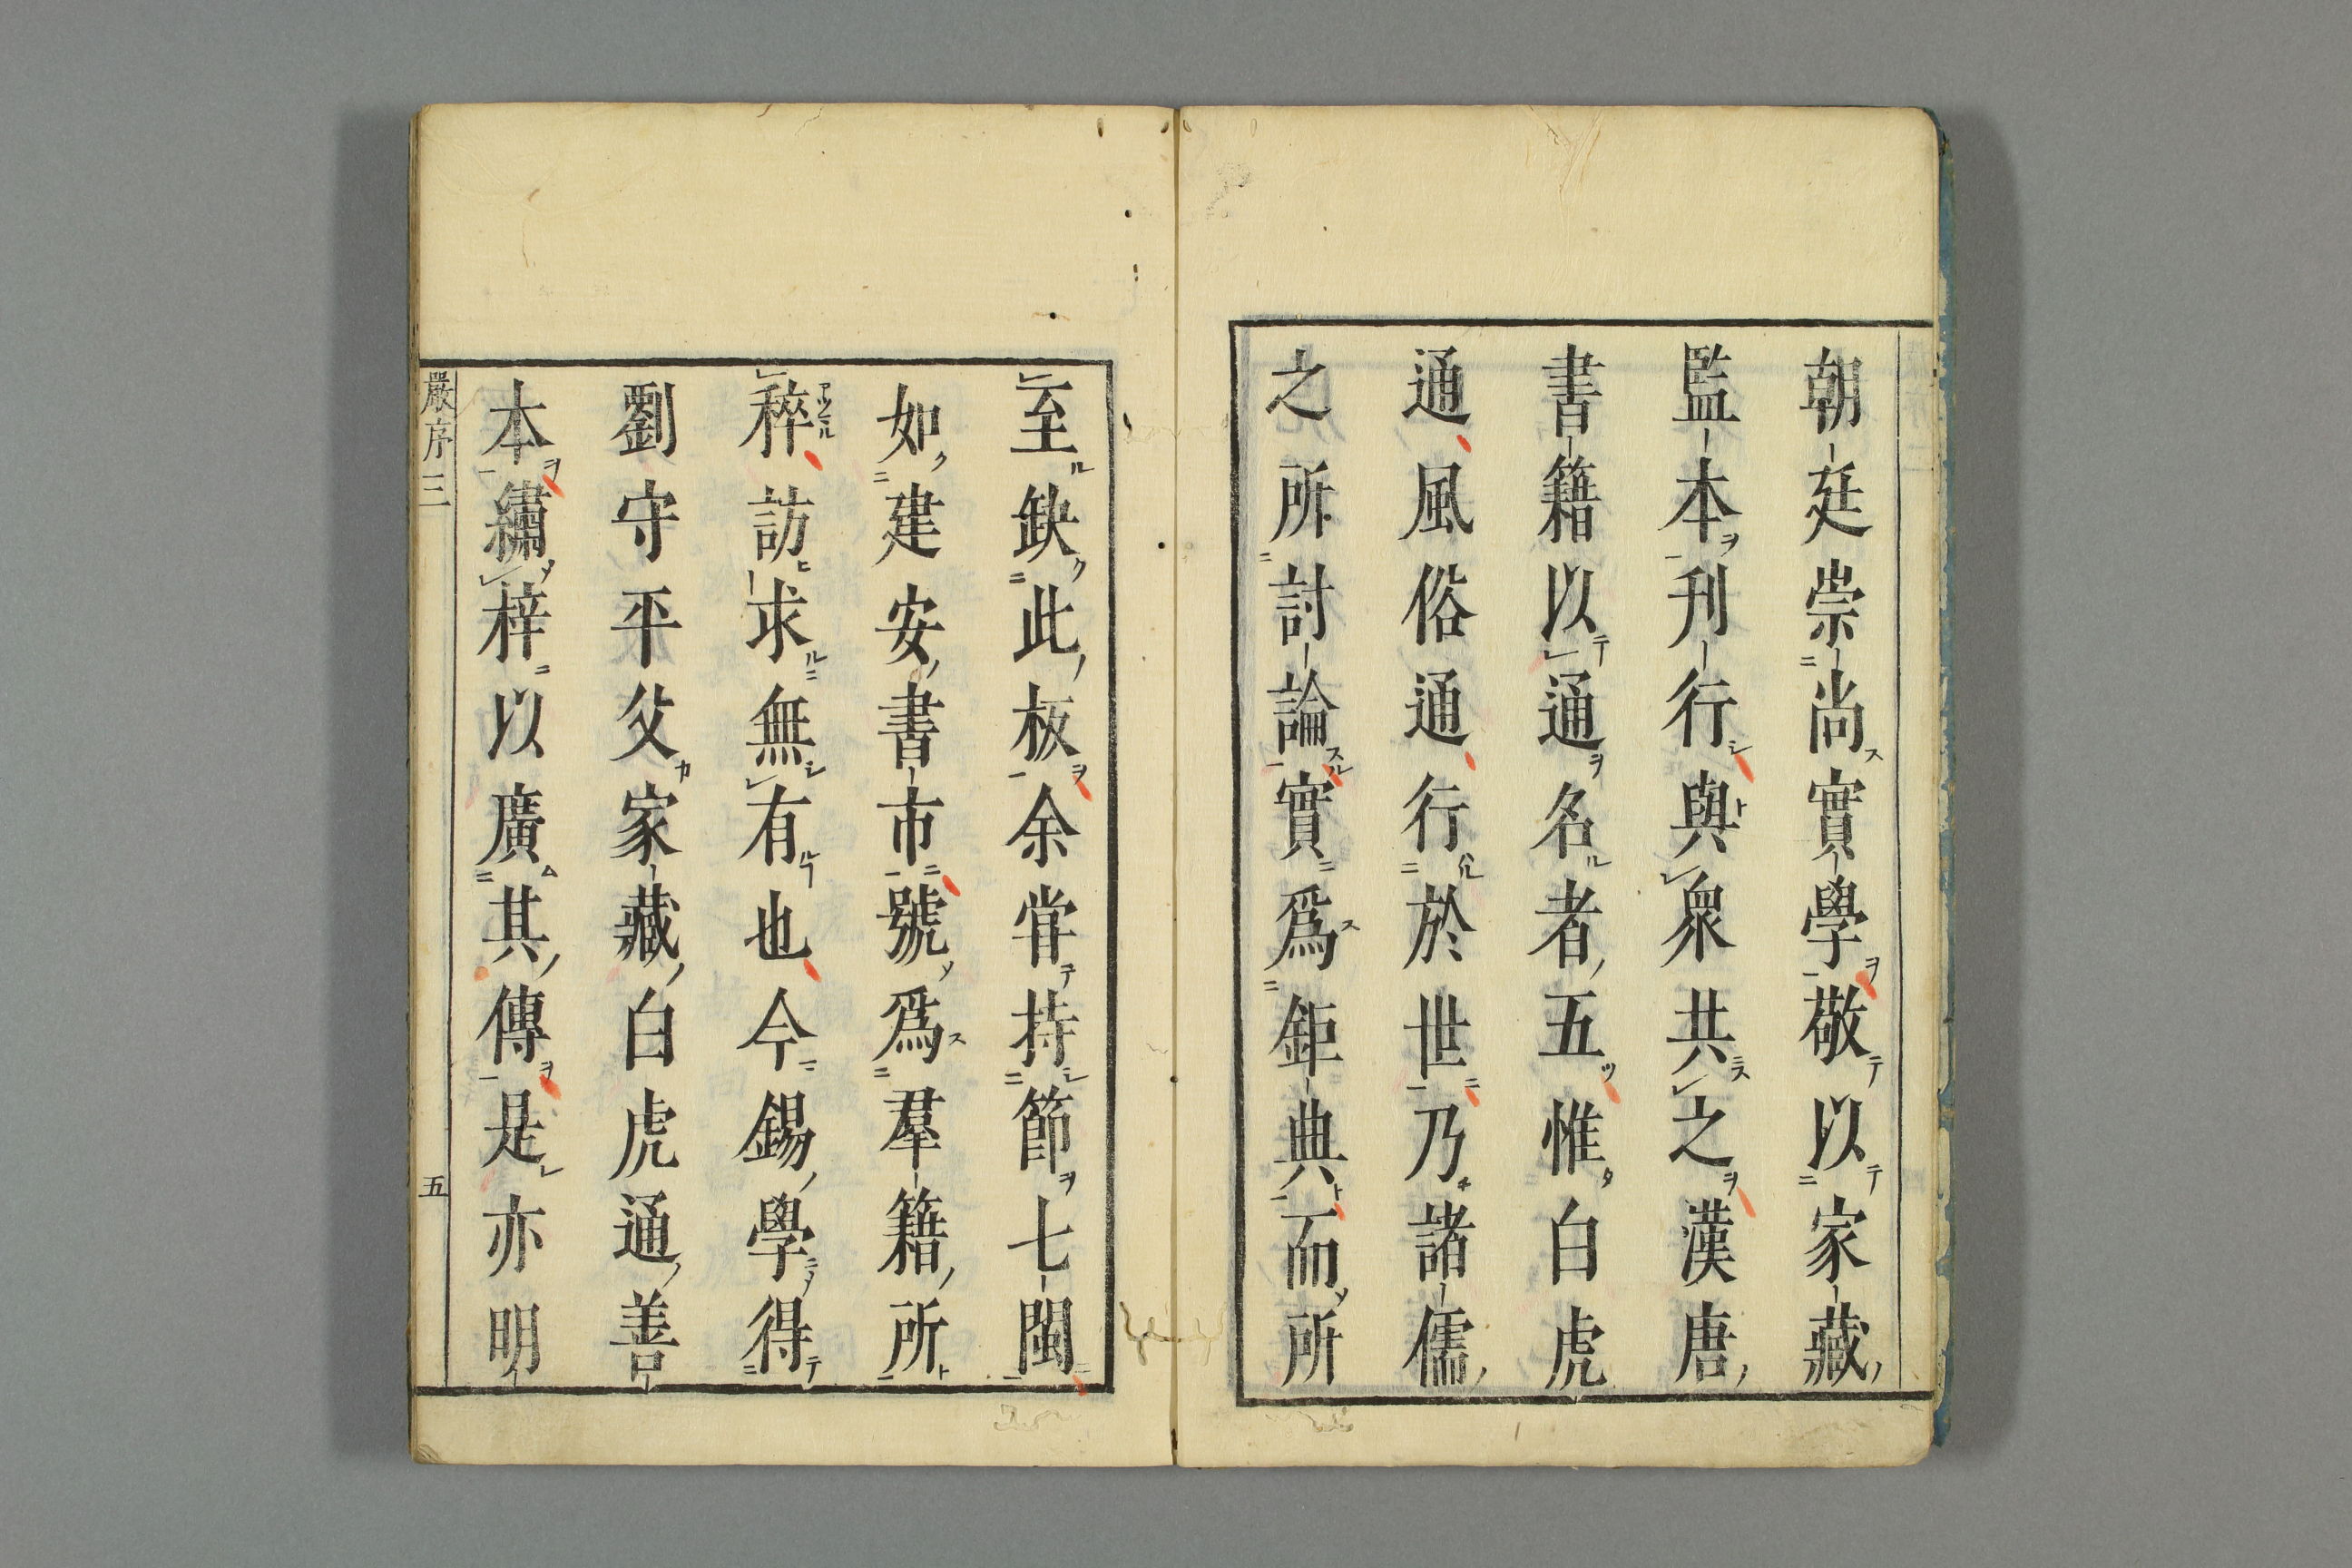 朝廷崇尚實學敬以家藏
監本刋行與衆共之漢唐
書籍以通名者五惟白虎
通風俗通行於世乃諸儒
之所討論實爲鉅典而所
至缺此板余甞持節七閩
如建安書市號爲羣籍所
稡訪求無有也今錫學得
劉守平父家藏白虎通善
本繡梓以廣其傳是亦明
嚴序三
五